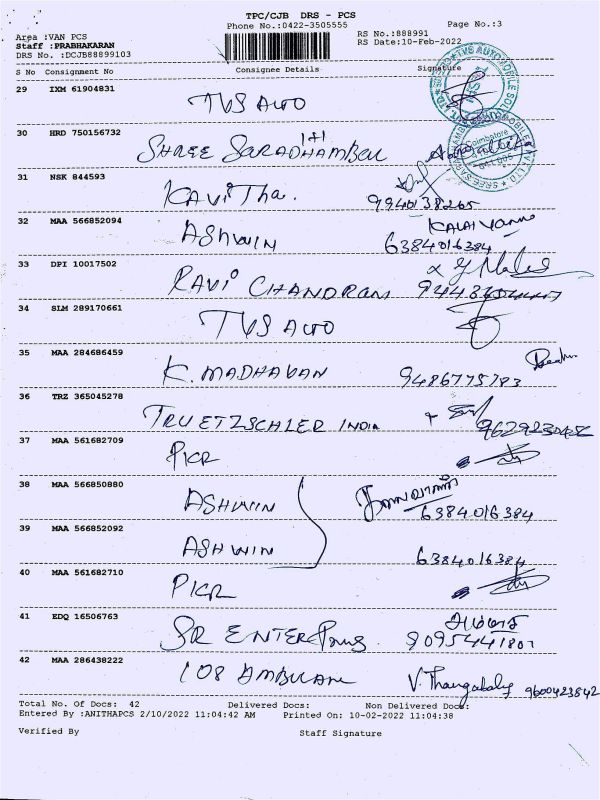 TPC/CJB DRS - PCS
Phone No.:0422-3505555
Page No.:3
Area :VAN PCS
RS No.:888991
Staff :PRABHAKARAN
RS Date:10-Feb-2022
DRS No. :DCJB88899103
S No Consignment No Consignee Details Signature
29 IXM 61904831
TVS AUTO
30 HRD 750156732
1+1
SHREE SARADHAMBAL
31 NSK 844593
KAVITha.
9940138265
32 MAA 566852094
KALAIVANI
ASHWIN 6384016384
33 DPI 10017502
RAVI CHANDRAN
34 SLM 289170661
TVS AUTO
35 MAA 284686459
K. MADHAVAN 9486775783
36 TRZ 365045278
TRUETZSCHLER INDIA
37 MAA 561682709
PKR
38 MAA 566850880
ASHWIN 6384016384
39 MAA 566852092
ASHWIN 6384016384
40 MAA 561682710
PKR
41 EDQ 16506763
SR ENTERPRISES 9095441807
42 MAA 286438222
108 AMBULANCE V. Thangabaly 9600423842
Total No. Of Docs: 42 Delivered Docs: Non Delivered Docs:
Entered By :ANITHAPCS 2/10/2022 11:04:42 AM Printed On: 10-02-2022 11:04:38
Verified By Staff Signature